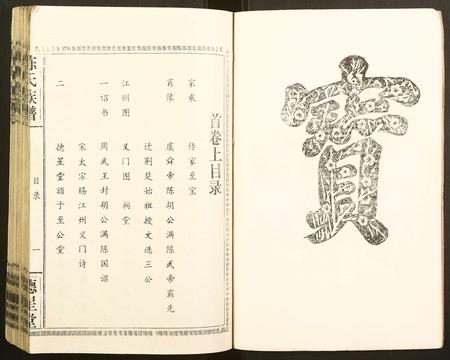 寶
首卷上目录
家乘　传家至宝
肖像　虞舜帝陈胡公满陈武帝霸先
迁荆楚始祖授文选三公
江州图　义门图　祠堂
一诏书　周武王封胡公满陈国诏
宋太宗赐江州义门诗
二　德星堂额于至公堂
陈氏族谱
目录
一
德星堂